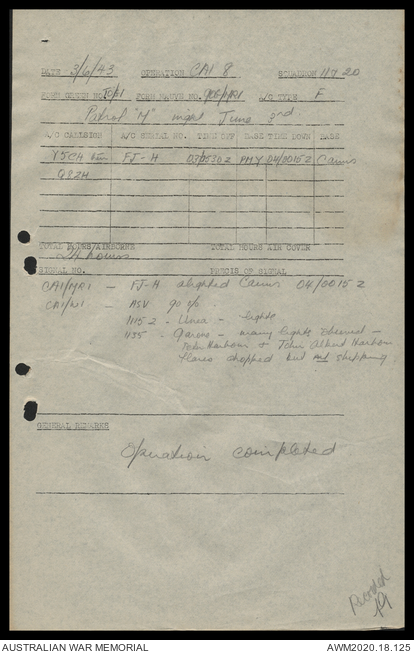 DATE 3/6/43 OPERATION CAI 8 SQUADRON 11 & 20
FORM GREEN NO. FORM MAUVE NO. A/C TYPE F
Patrol "M" night June 3rd.
A/C CALLSIGN A/C SERIAL NO. TIME OFF BASE TIME DOWN BASE
Y5CH FJ-H PHY 04/0015Z Cairns
Q82H
TOTAL HOURS AIRBORNE TOTAL HOURS AIR COVER
hours
SIGNAL NO. PRECIS OF SIGNAL
CAI/MR1 - FJ-H alighted Cairns 04/0015Z
- ASV 90 o/o -
1115Z - - lights
1435 - - many lights observed -
Tehin Harbour & Tehin Albert Harbour
flares dropped but no shipping
GENERAL REMARKS
Operation completed
19
AUSTRALIAN WAR MEMORIAL AWM2020.18.125